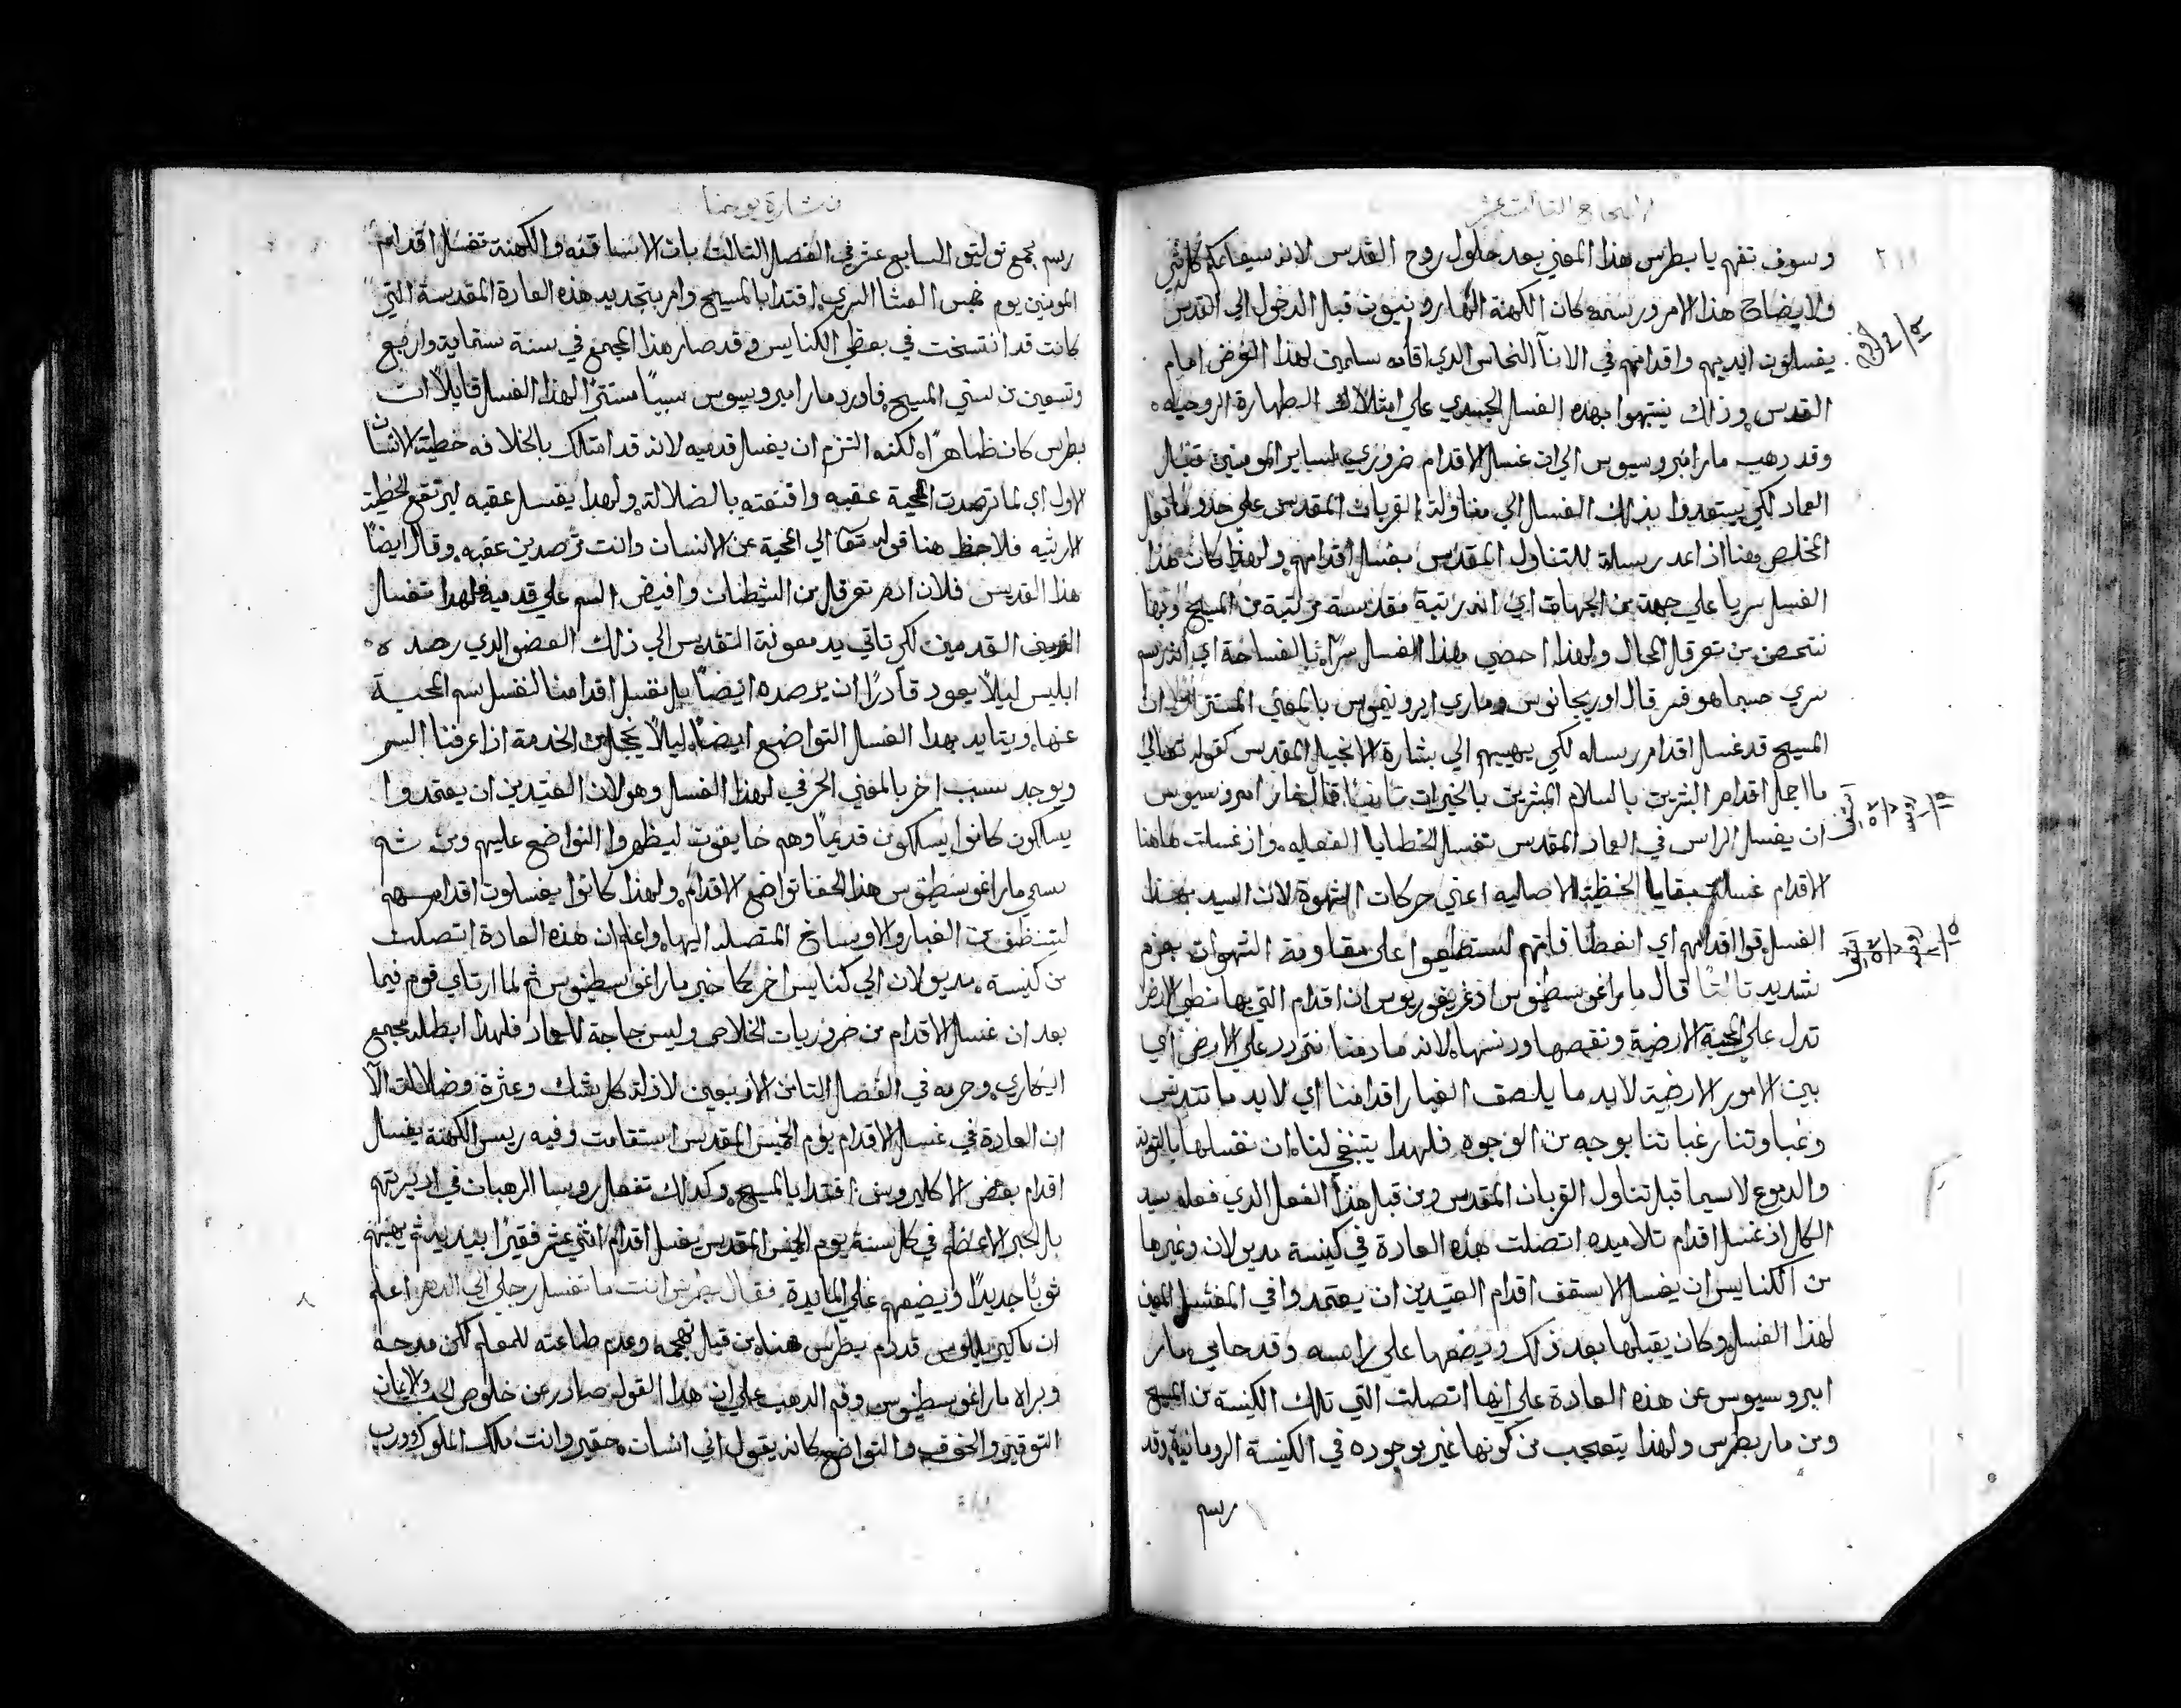 الاصحاح الثالث عشر
٢١١
وسوف تفهم يا بطرس هذا المعني بعد حلول روح القدس لانه سيعلمك كل شي
ولايضاح هذا الامر ورسمه كان الكهنة الهارونيون قبل الدخول الي القدس
يغسلون ايديهم واقدامهم في الانآ النحاس الذي اقامه سليمن لهذا الغرض امام
القدس وذلك ينتبهوا بهذه الغسل الجسدي علي امتلاك الطهارة الروحيه
وقد دهب مار امبروسيوس الي ان غسل الاقدام ضروري لساير المومنين قبل
العماد لكي يستعدوا بذلك الغسل الي مناولة القربان المقدس علي حدو ما فعل
المخلص هنا اذ اعد رسله للتناول المقدس بغسل اقدامهم ولهذا كان هذا
الغسل سريا علي جهة من الجهات اي انه رتبة مقدسة مرتبة من المسيح وبها
نتحصن من تعرقل المحال ولهذا احصي هذا الغسل سرًا بالفساحة اي انه رسم
سري حسبما هو قر قال اوريجانوس وماري ايرونيموس بالمعني المستتر اولا ان
المسيح قد غسل اقدام رسله لكي يهييهم الي بشارة الانجيل المقدس كقوله تعالي
ما اجمل اقدام المبشرين بالسلام المبشرين بالخيرات ثانيًا قال مار امبروسيوس
ان يغسل الراس في العماد المقدس تغسل الخطايا الفعليه واذ غسلت هاهنا
الاقدام غسلت بقايا الخطية الاصليه اعني حركات الشهوة لان السيد بهذا
الغسل قوا اقدامهم اي انعطافاتهم لستطيعوا علي مقاومة الشهوات بعزم
شديد ثالثًا قال مار اغوسطينوس اذ غريغوريوس ان اقدام التي بها نطي الارض
تدل علي المحبة الارضية ونقصها ودنسها لانه ما دمنا نتردد علي الارض اي
بين الامور الارضية لابد ما يلصق الغبار اقدامنا اي لابد ما تتدنس
وغباوتنا رغباتنا بوجه من الوجوه فلهدا ينبغي لنا ان نغسلها بالتوبه
والدموع لاسيما قبل تناول القربان المقدس ومن قبل هذا الفعل الذي فعله سيد
الكل اذ غسل اقدام تلاميده اتصلت هذه العادة في كنيسة مديولان وغيرها
من الكنايس ان يغسل الاسقف اقدام العتيدين ان يعتمدوا في المغتسل المعين
لهذا الغسل وكان يقبلها بعد ذلك ويضعها علي راسه وقد حامي مار
امبروسيوس عن هذه العادة علي انها اتصلت التي تلك الكنيسة من المسيح
ومن مار بطرس ولهذا يتعجب من كونها غير موجوده في الكنيسة الرومانية وقد
رسم
بشارة يوحنا
رسم مجمع توليتو السابع عشر في الفصل الثالث بان الاساقفه والكهنة تغسل اقدام
المومنين يوم خميس العشا السري اقتدا بالمسيح وامر بتجديد هذه العادة المقدسة التي
كانت قد انتسخت في بعض الكنايس وقد صار هذا المجمع في سنة ستماية واربع
وتسعين من سني المسيح فاورد مار امبروسيوس سببًا مستترًا لهذا الغسل قايلًا ان
بطرس كان طاهرًا لكنه التزم ان يغسل قدميه لانه قد امتلك بالخلافه خطية الانسان
الاول اي لما ترصدت الحية عقبه واقنعته بالضلالة ولهدا يغسل عقبه ليرتفع الخطية
الارثيه فلاحظ هنا قوله تعالي الي الحية عن الانسان وانت ترصدين عقبه وقال ايضًا
هذا القديس فلان ادم تعرقل من الشيطان وافيض السم علي قدميه فلهدا تغسل
القدمين لكي تاتي يد معونة التقديس الي ذلك العضو الدي رصده
ابليس ليلًا يعود قادرًا ان يرصده ايضًا بل نغسل اقدامنا لنغسل سم الحية
عنها ويتايد بهدا الغسل التواضع ايضًا ليلًا نخجل من الخدمة اذا عرفنا السر
ويوجد سبب اخر بالمعني الحرفي لهذا الغسل وهو لان العتيدين ان يعتمدوا
يسلكون كانوا يسلكون قديمًا وهم حفايفون ليظهروا التواضع عليهم ومن ثم
سمي مار اغوسطينوس هذا الحفا تواضع الاقدام ولهذا كانوا يغسلون اقدامهم
لتنظف من الغبار والاوساخ المتصله اليها واعلم ان هذه العادة اتصلت
من كنيسة مديولان الي كنايس اخر كما خبر مار اغوسطينوس ثم لما ارتاي قوم فيما
بعد ان غسل الاقدام من ضروريات الخلاص وليس حاجة للعماد فلهدا ابطله مجمع
ايكاري وحرمه في الفصل الثامن الاربعين لازلة كل شك وعثرة وضلالة الا
ان العادة في غسل الاقدام يوم الخميس المقدس استقامت وفيه ريس الكهنة يغسل
اقدام بعض الاكليروس اقتدا بالمسيح وكدلك تفعل روسا الرهبان في اديرتهم
بل الحبر الاعظم في كل سنة يوم الخميس المقدس يغسل اقدام اثني عشر فقيرًا بيديه ثم يهبهم
ثوبًا جديدًا ويضعهم علي المايدة فقال بطرس انت ما تغسل رجلي الي الدهر اعلم
ان باسيليوس قد ذم بطرس هنا من قبل تهجمه وعدم طاعته للمعلم لكن مدحه
وبراه مار اغوسطينوس وفم الدهب علي ان هدا القول صادر عن خلوص الحب والايمان
التوقير والخوف والتواضع كانه يقول اني انسان حقير وانت ملك الملوك ورب